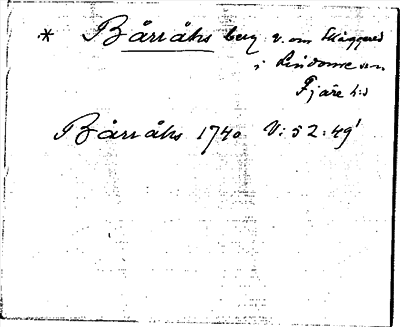 * Bårråhs berg v. om Skäggered
i Lindome sn
Fjäre hd
Bårråhs 1740 V: 52: 49¹